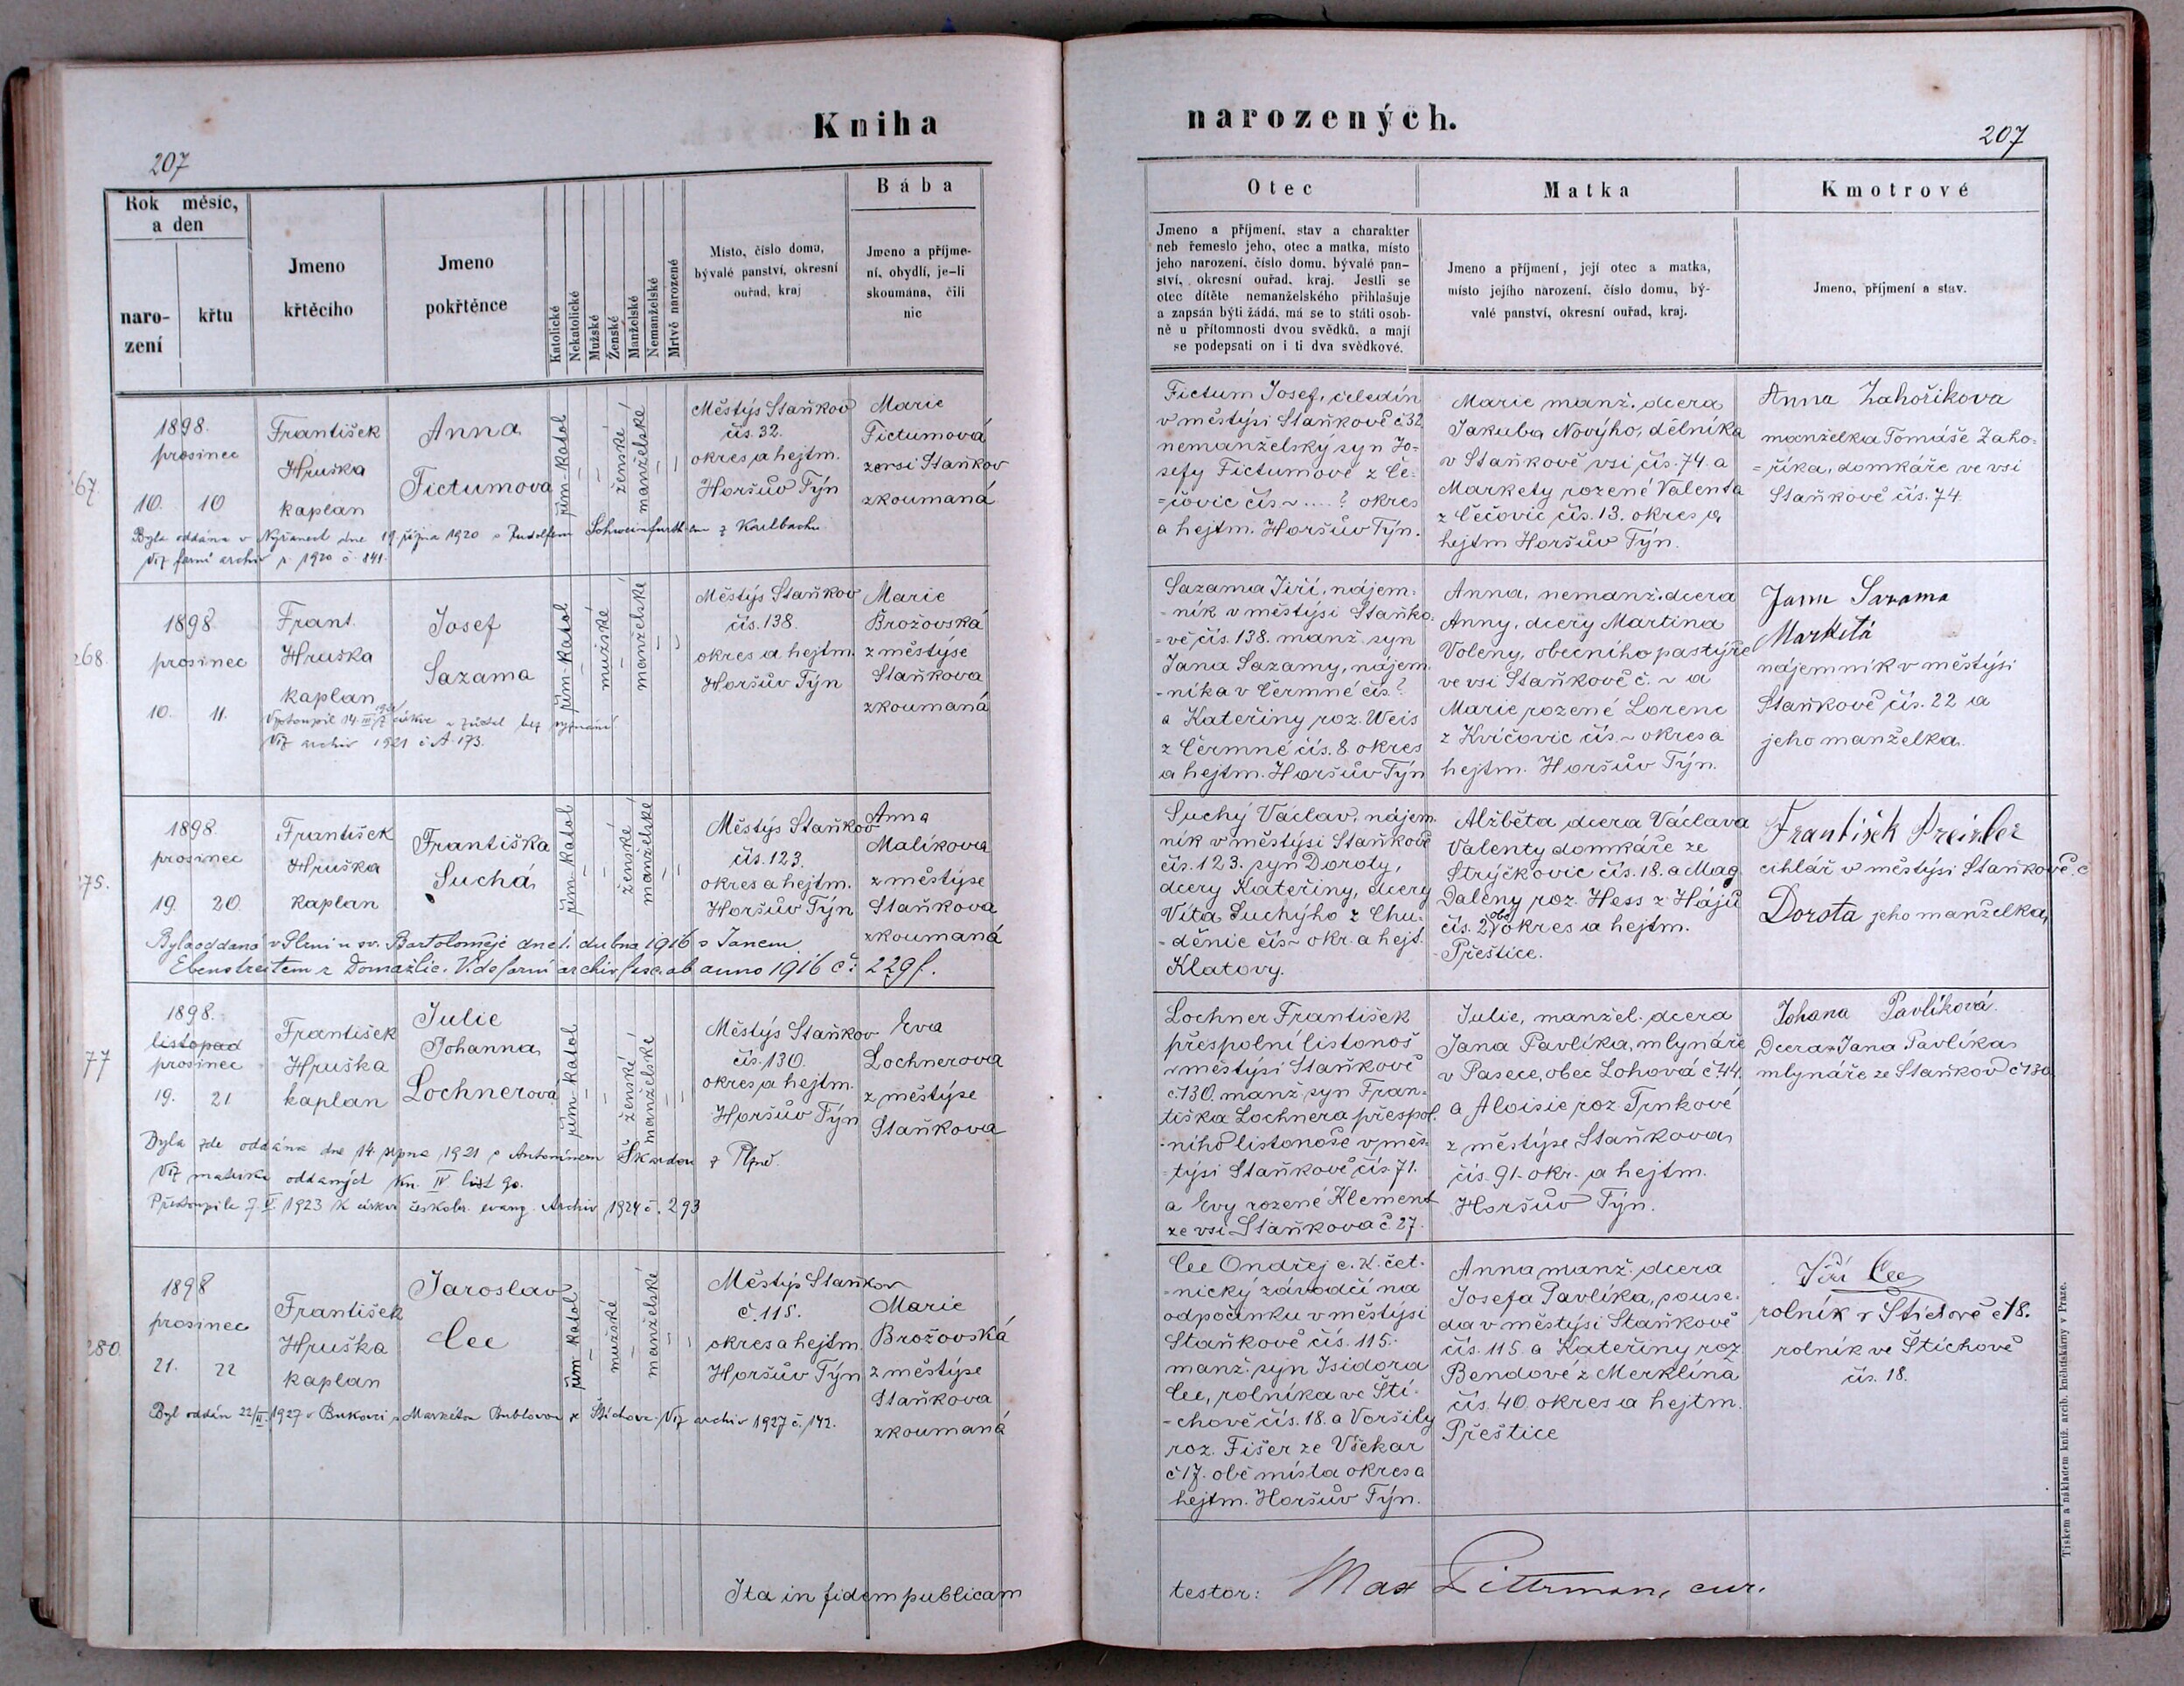 Kniha
207
Rok měsíc,
a den
naro-
zení
křtu
Jmeno
křtěcího
Jmeno
pokřtěnce
Katolické
Nekatolické
Mužské
Ženské
Manželské
Nemanželské
Mrtvě narozené
Místo, číslo domu,
bývalé panství, okresní
ouřad, kraj
Bába
Jmeno a příjme-
ní, obydlí, je-li
skoumána, čili
nic
67.
1898.
prosinec
10. 10
František
Hruška
kaplan
Anna
Fictumova
řím-katol
ženské
manželské
Městýs Staňkov
čís. 32.
okres a hejtm.
Horšův Týn
Marie
Fictumová
ze vsi Staňkov
zkoumaná
Byla oddána v Nýřanech dne 19. října 1920 s Rudolfem Schweinfurth
Viz farní archiv r. 1920 č. 841.
268.
1898
prosinec
10. 11.
Frant.
Hruška
kaplan
Josef
Sazama
řím-katol
mužské
manželské
Městýs Staňkov
čís. 138.
okres a hejtm.
Horšův Týn
Marie
Brožovská
z městýse
Staňkova
zkoumaná
Vystoupil 14. III. 1921 z církve a zůstal bez vyznání
Viz archiv 1921 č. A. 173.
275.
1898.
prosinec
19. 20.
František
Hruška
kaplan
Františka
Suchá
řím-katol
ženské
manželské
Městýs Staňkov
čís. 123.
okres a hejtm.
Horšův Týn
Anna
Malíkova
z městýse
Staňkova
zkoumaná
Byla oddaná v Plzni u sv. Bartoloměje dne 1. dubna 1916 s Janem
Ebenstreitem z Domažlic. Vide farní archiv fasc. ab anno 1916 č: 229f.
77
1898.
listopad
prosinec
19. 21
František
Hruška
kaplan
Julie
Johanna
Lochnerová
řím-katol
ženské
manželské
Městýs Staňkov
čís. 130.
okres a hejtm.
Horšův Týn
Eva
Lochnerova
z městýse
Staňkova
Byla zde oddána dne 14. srpna 1921 s Antonínem Škardou z Plzně.
Viz matrika oddaných Kn. IV list 90.
Přestoupila 7. V. 1923 k církvi českobr. evang. Archiv 1924 č. 293
280.
1898
prosinec
21. 22
František
Hruška
kaplan
Jaroslav
Cee
řím-katol
mužské
manželské
Městýs Staňkov
č. 115.
okres a hejtm.
Horšův Týn
Marie
Brožovská
z městýse
Staňkova
zkoumaná
Byl oddán 22/II. 1927 v Bukovci s Markétou Bublovou ze Štichova. Viz archiv 1927 č. 142.
Ita in fidem publicam
narozených.
207
Otec
Jmeno a příjmení, stav a charakter
neb řemeslo jeho, otec a matka, místo
jeho narození, číslo domu, bývalé pan-
ství, okresní ouřad, kraj. Jestli se
otec dítěte nemanželského přihlašuje
a zapsán býti žádá, má se to státi osob-
ně u přítomnosti dvou svědků, a mají
se podepsati on i ti dva svědkové.
Matka
Jmeno a příjmení, její otec a matka,
místo jejího narození, číslo domu, bý-
valé panství, okresní ouřad, kraj.
Kmotrové
Jmeno, příjmení a stav.
Fictum Josef, čeledín
v městýsi Staňkově č 32
nemanželský syn Jo-
sefy Fictumové z Če-
=čovic čís ~ ....? okres
a hejtm. Horšův Týn.
Marie manž. dcera
Jakuba Novýho, dělníka
v Staňkově vsi čís. 74. a
Markety rozené Valenta
z Čečovic čís. 13. okres a
hejtm Horšův Týn.
Anna Zahoříkova
manželka Tomáše Zaho=
=říka, domkáře ve vsi
Staňkově čís. 74.
Sazama Jiří, nájem-
-ník v městýsi Staňko-
=vě čís. 138. manž. syn
Jana Sazamy, nájem-
-níka v Čermné čís.?
a Kateřiny roz. Weis
z Čermné čís. 8. okres
a hejtm. Horšův Týn
Anna, nemanž. dcera
Anny, dcery Martina
Voleny, obecního pastýře
ve vsi Staňkově č. ~ a
Marie rozené Lorenc
z Kvíčovic čís. ~ okres a
hejtm. Horšův Týn.
Jann Sazama
Marketa
nájemník v městýsi
Staňkově čís. 22 a
jeho manželka.
Suchý Václav, nájem-
ník v městýsi Staňkově
čís. 123. syn Doroty,
dcery Kateřiny, dcery
Víta Suchýho z Chu-
-děnic čís ~ okr. a hejt.
Klatovy.
Alžběta dcera Václava
Valenty domkáře ze
Strýčkovic čís. 18. a Mag
Daleny roz. Hess z Hájů
čís. 2, obě okres a hejtm.
Přeštice.
František Preisler
cihlář v městýsi Staňkově. č
Dorota jeho manželka,
Lochner František
přespolní listonoš
v městýsi Staňkově
č. 130. manž. syn Fran-
tiška Lochnera přespol-
-ního listonoše v měs-
=týsi Staňkově čís. 71.
a Evy rozené Klement
ze vsi Staňkova č. 27.
Julie, manžel. dcera
Jana Pavlíka, mlynáře
v Pasece, obec Lohová č. 44.
a Aloisie roz. Trnkové
z městýse Staňkova,
čís. 91. okr. a hejtm.
Horšův Týn.
Johana Pavlíková.
Dcera Jana Pavlíka
mlynáře ze Staňkov č 130
Cee Ondřej c. k. čet-
=nický závodčí na
odpočinku v městýsi
Staňkově čís. 115.
manž. syn Isidora
Cee, rolníka ve Šti-
-chově čís. 18. a Voršily
roz. Fišer ze Všekar
č 17. obě místa okres a
hejtm. Horšův Týn.
Anna manž. dcera
Josefa Pavlíka, souse-
da v městýsi Staňkově
čís. 115. a Kateřiny roz.
Bendové z Merklína
čís. 40. okres a hejtm.
Přeštice
Jiří Cee
rolník v Štichově č 18.
rolník ve Štichově
čís. 18.
testor: Max Pittrman, cur.
Tiskem a nákladem kníž. arcib. kněhtiskárny v Praze.